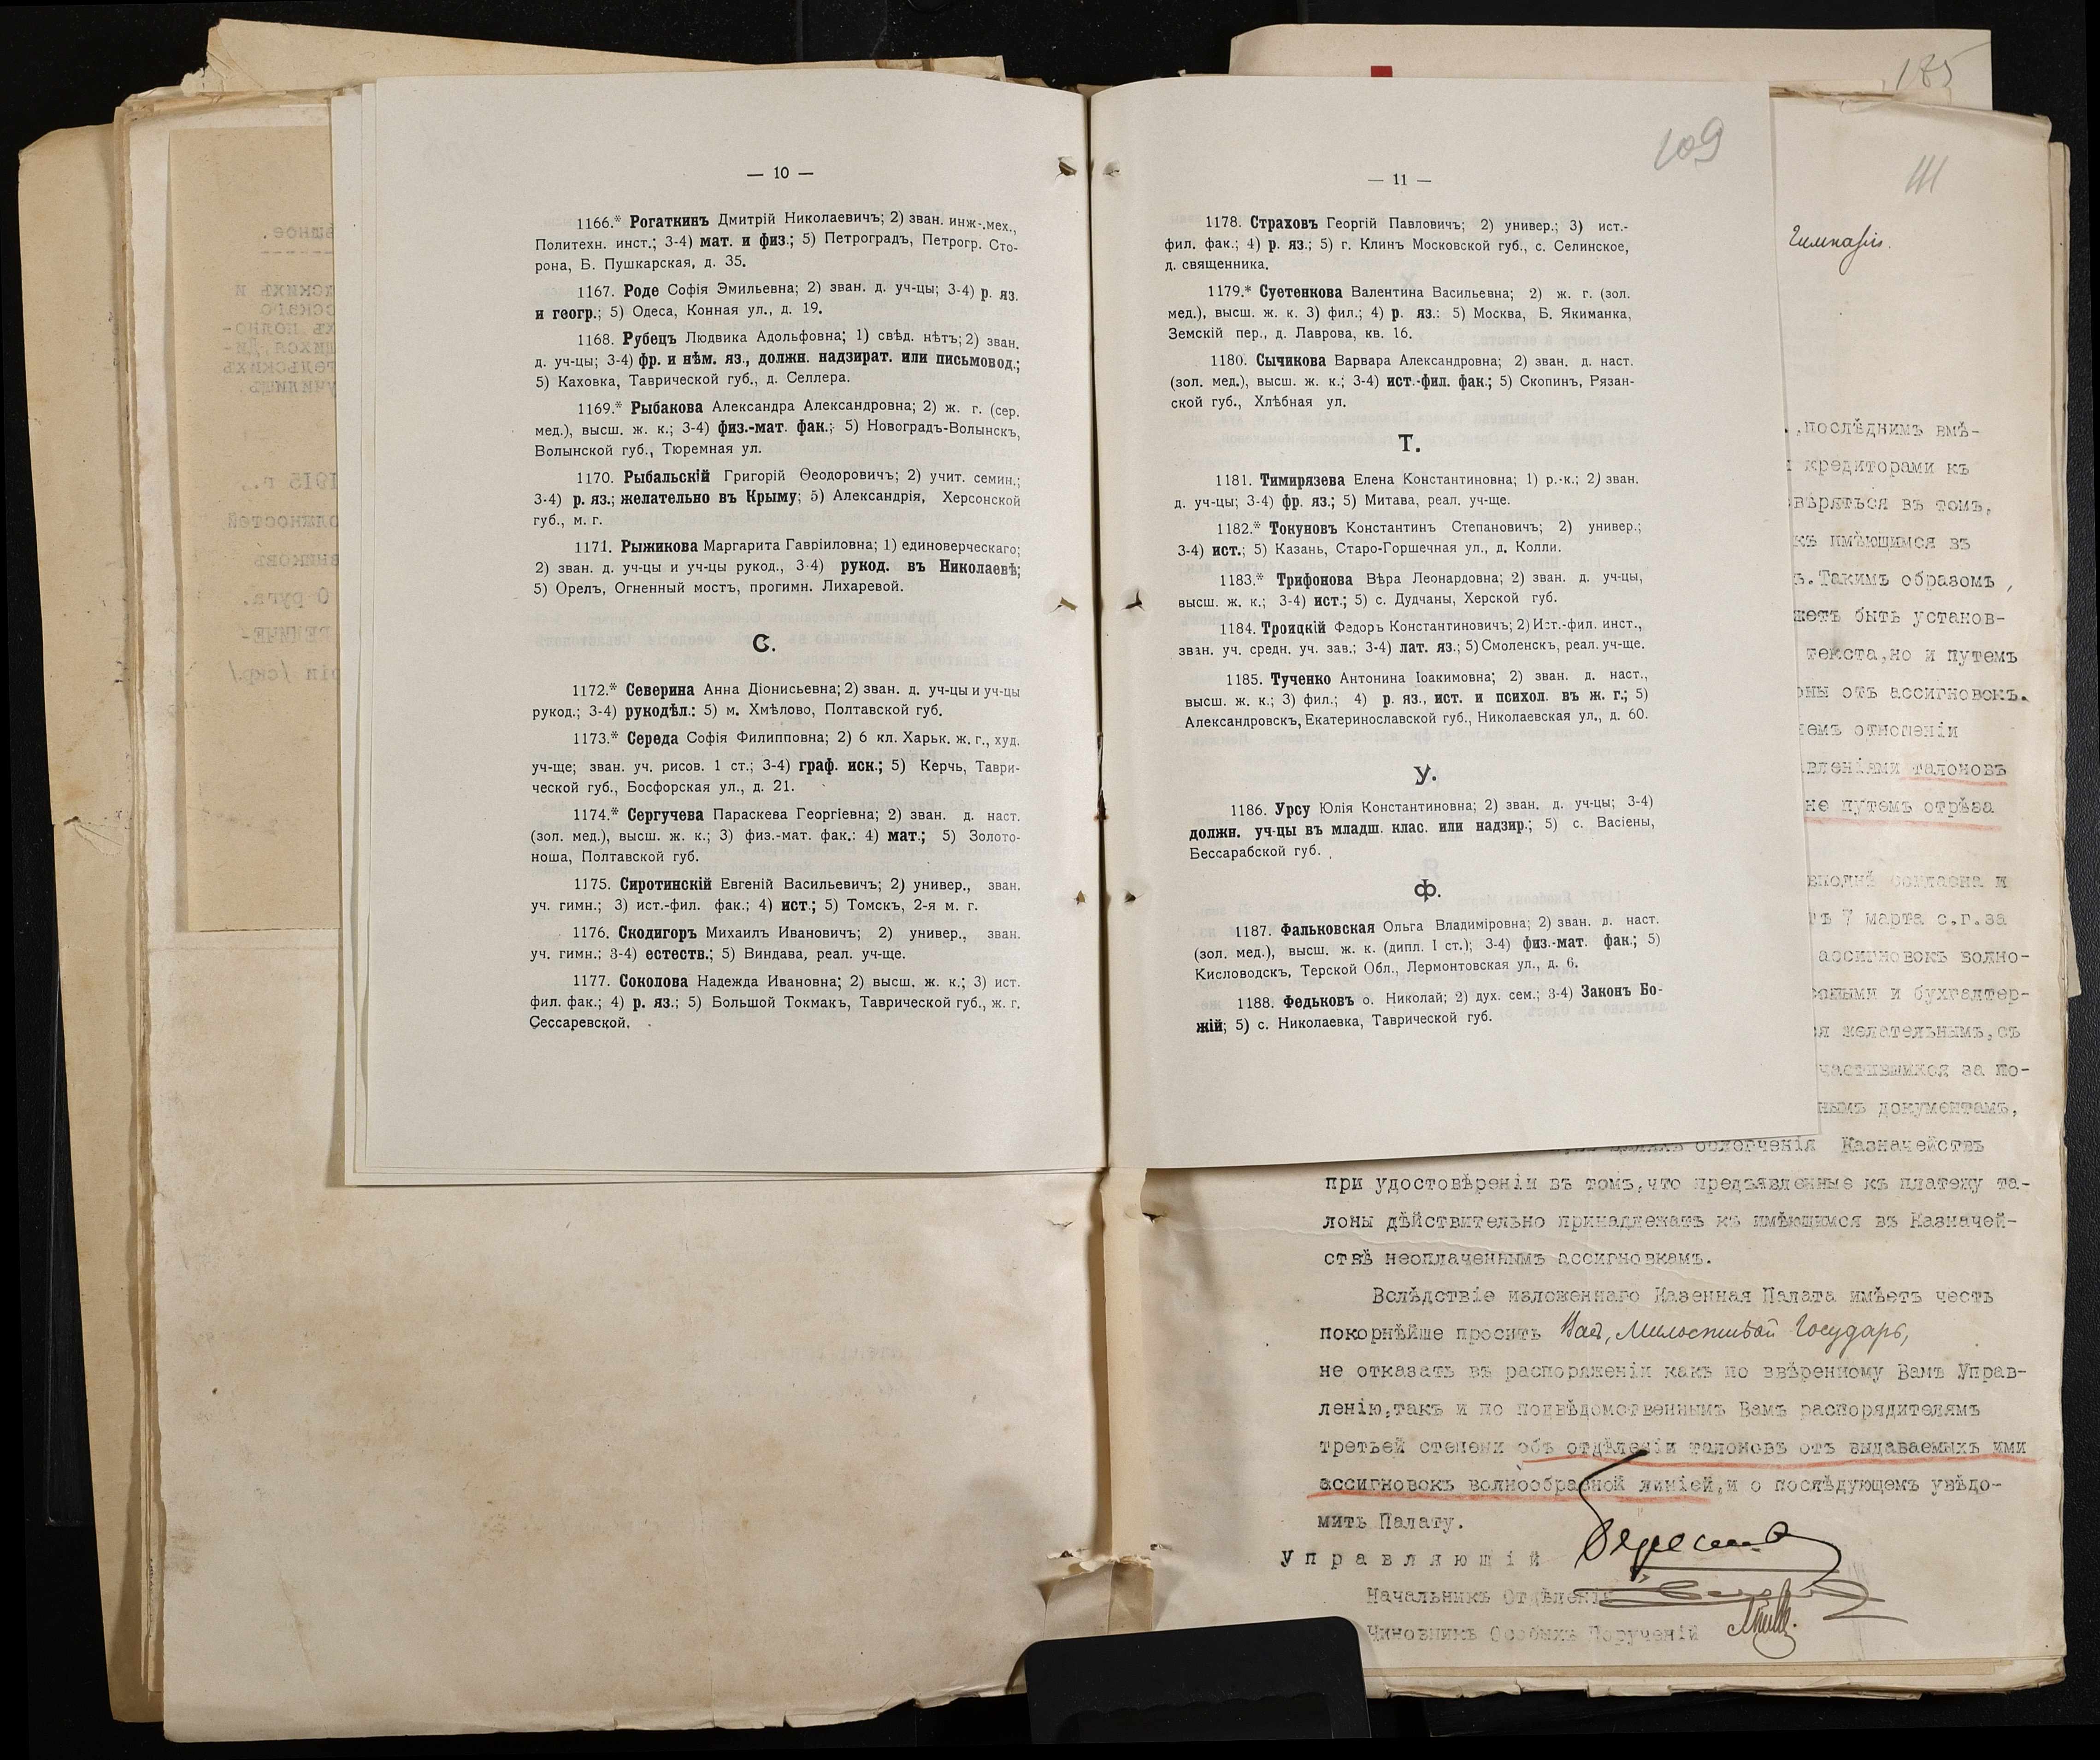 — 10 —
1166.* Рогаткинъ Дмитрій Николаевичъ; 2) зван. инж-.мех.,
Политехн. инст.; 3-4) мат. и физ.; 5) Петроградъ, Петрогр. Сто-
рона, Б. Пушкарская, д. 35.
1167. Роде Софія Эмильевна; 2) зван. д. уч-цы; 3-4) р. яз.
и геогр.; 5) Одеса, Конная ул., д. 19.
1168. Рубецъ Людвика Адольфовна; 1) свѣд. нѣтъ; 2) зван.
д. уч-цы; 3-4) фр. и нѣм. яз., должн. надзират. или письмовод.;
5) Каховка, Таврической губ., д. Селлера.
1169.* Рыбакова Александра Александровна; 2) ж. г. (сер.
мед.), высш. ж. к.; 3-4) физ.-мат. фак.; 5) Новоградъ-Волынскъ,
Волынской губ., Тюремная ул.
1170. Рыбальскій Григорій Ѳеодоровичъ; 2) учит. семин.;
3-4) р. яз.; желательно въ Крыму; 5) Александрія, Херсонской
губ., м. г.
1171. Рыжикова Маргарита Гавріиловна; 1) единоверческаго;
2) зван. д. уч-цы и уч-цы рукод., 3-4) рукод. въ Николаевѣ;
5) Орелъ, Огненный мостъ, прогимн. Лихаревой.
С.
1172.* Северина Анна Діонисьевна; 2) зван. д. уч-цы и уч-цы
рукод.; 3-4) рукодѣл.: 5) м. Хмѣлово, Полтавской губ.
1173.* Середа Софія Филипповна; 2) 6 кл. Харьк. ж. г., худ.
уч-ще; зван. уч. рисов. 1 ст.; 3-4) граф. иск.; 5) Керчь, Таври-
ческой губ., Босфорская ул., д. 21.
1174.* Сергучева Параскева Георгіевна; 2) зван. д. наст.
(зол. мед.), высш. ж. к.; 3) физ.-мат. фак.: 4) мат.; 5) Золото-
ноша, Полтавской губ.
1175. Сиротинскій Евгеній Васильевичъ; 2) универ., зван.
уч. гимн.; 3) ист-фил. фак.; 4) ист.; 5) Томскъ, 2-я м. г.
1176. Скодигоръ Михаилъ Ивановичъ; 2) универ., зван.
уч. гимн.; 3-4) естеств.; 5) Виндава, реал. уч-ще.
1177. Соколова Надежда Ивановна; 2) высш. ж. к.; 3) ист.
фил. фак.; 4) р. яз.; 5) Большой Токмакъ, Таврической губ., ж. г.
Сессаревской.
— 11 —
109
1178. Страховъ Георгій Павловичъ; 2) универ.; 3) ист.-
фил. фак.; 4) р. яз.; 5) г. Клинъ Московской губ., с. Селинское,
д. священника.
1179.* Суетенкова Валентина Васильевна; 2) ж. г. (зол.
мед.), высш. ж. к. 3) фил.; 4) р. яз.: 5) Москва, Б. Якиманка,
Земскій пер., д. Лаврова, кв. 16.
1180. Сычикова Варвара Александровна; 2) зван. д. наст.
(зол. мед.), высш. ж. к.; 3-4) ист.-фил. фак.; 5) Скопинъ, Рязан-
ской губ., Хлѣбная ул.
Т.
1181. Тимирязева Елена Константиновна; 1) р.-к.; 2) зван.
д. уч-цы; 3-4) фр. яз.; 5) Митава, реал. уч-ще.
1182.* Токуновъ Константинъ Степановичъ; 2) универ.;
3-4) ист.; 5) Казань, Старо-Горшечная ул., д. Колли.
1183.* Трифонова Вѣра Леонардовна; 2) зван. д. уч-цы,
высш. ж. к.; 3-4) ист.; 5) с. Дудчаны, Херской губ.
1184. Троицкій Федоръ Константиновичъ; 2) Ист.-фил. инст.,
зван. уч. средн. уч. зав.; 3-4) лат. яз.; 5) Смоленскъ, реал. уч-ще.
1185. Тученко Антонина Іоакимовна; 2) зван. д. наст.,
высш. ж. к.; 3) фил.; 4) р. яз., ист. и психол. въ ж. г.; 5)
Александровскъ, Екатеринославской губ., Николаевская ул., д. 60.
У.
1186. Урсу Юлія Константиновна; 2) зван. д. уч-цы; 3-4)
должн. уч-цы въ младш. клас. или надзир.; 5) с. Васіены,
Бессарабской губ.
Ф.
1187. Фальковская Ольга Владиміровна; 2) зван. д. наст.
(зол. мед.), высш. ж. к. (дипл. I ст.); 3-4) физ.-мат. фак.; 5)
Кисловодскъ, Терской Обл., Лермонтовская ул., д. 6.
1188. Федьковъ о. Николай; 2) дух. сем.; 3-4) Законъ Бо-
жій; 5) с. Николаевка, Таврической губ.
185
111
Гимназія.
,послѣднимъ вмѣ-
кредиторами къ
въ томъ,
имѣющимся въ
Такимъ образомъ,
быть установ-
текста,но и путемъ
отъ ассигновокъ.
отношеніи
талоновъ
не путемъ отрѣза
вполнѣ согласна и
7 марта с.г.за
ассигновокъ волно-
и бухгалтер-
желательнымъ,съ
за по-
документамъ,
облегченія Казначействъ
при удостовѣреніи въ томъ,что предъявленные къ платежу та-
лоны дѣйствительно принадлежатъ къ имѣющимся въ Казначей-
ствѣ неоплаченнымъ ассигновкамъ.
Вслѣдствіе изложеннаго Казенная Палата имѣетъ честь
покорнѣйше просить Васъ, Милостивый Государь,
не отказать въ распоряженіи какъ по ввѣренному Вамъ Управ-
ленію,такъ и по подвѣдомственнымъ Вамъ распорядителямъ
третьей степени объ отдѣленіи талоновъ отъ выдаваемыхъ ими
ассигновокъ волнообразной линіей,и о послѣдующемъ увѣдо-
мить Палату.
Управляющій
Начальникъ Отдѣленія
Чиновникъ Особыхъ Порученій